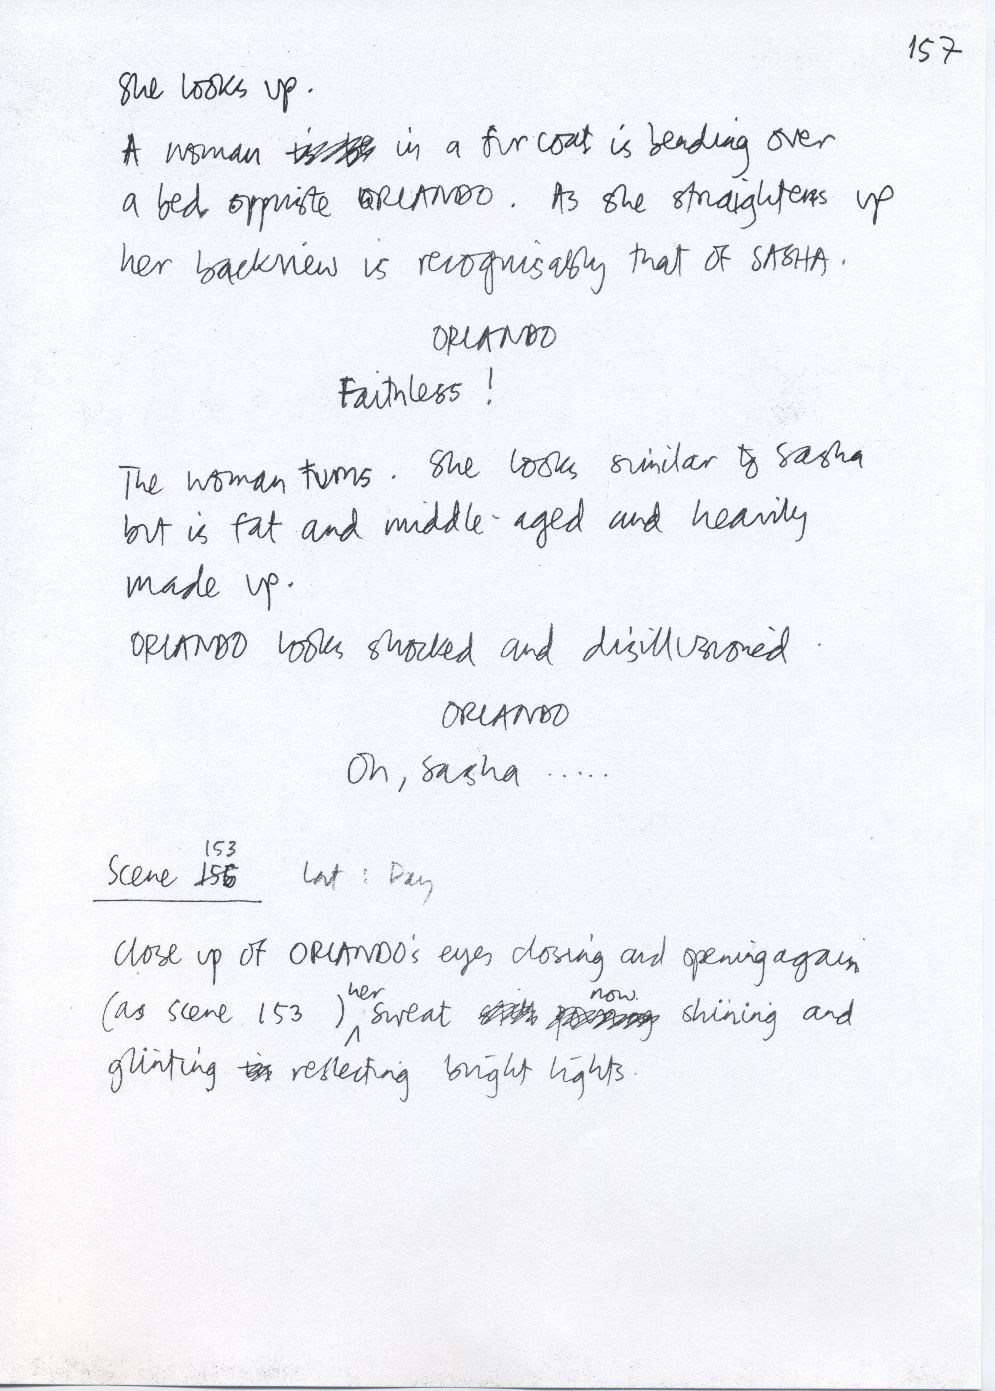 157
She looks up.
A woman in a fur coat is bending over
a bed opposite ORLANDO. As she straightens up
her backview is recognisably that of SASHA.
ORLANDO
Faithless!
The woman turns. She looks similar to Sasha
but is fat and middle-aged and heavily
made up.
ORLANDO looks shocked and disillusioned.
ORLANDO
Oh, Sasha .....
153
Scene 156 Int : Day
Close up of ORLANDO's eyes closing and opening again
her now
(as scene 153 ) sweat shining and
glinting reflecting bright lights.